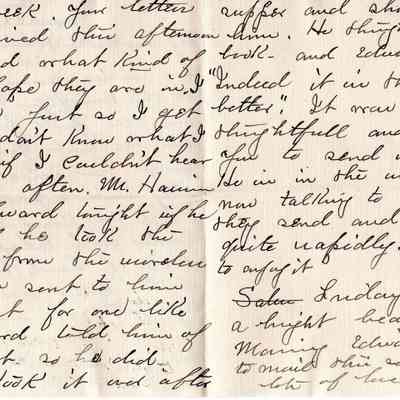 eek. Your letter
ived this afternoon
d what kind of
ope they are in. I
Just so I get
don't know what I
if I couldn't hear
often. Mr.
ward tonight if he
he took the
from the
sent to him
t for one like
rd told him of
t. so he did
look it over after
supper and sh
him. He
look - and Edw
"Indeed it in th
better". It was
thoughtfull and
You to send
He is in the
now talking to
they send and
quite rapidly.
to enjoy it
Friday
a bright bea
Morning Edw
to mail this
lots of love